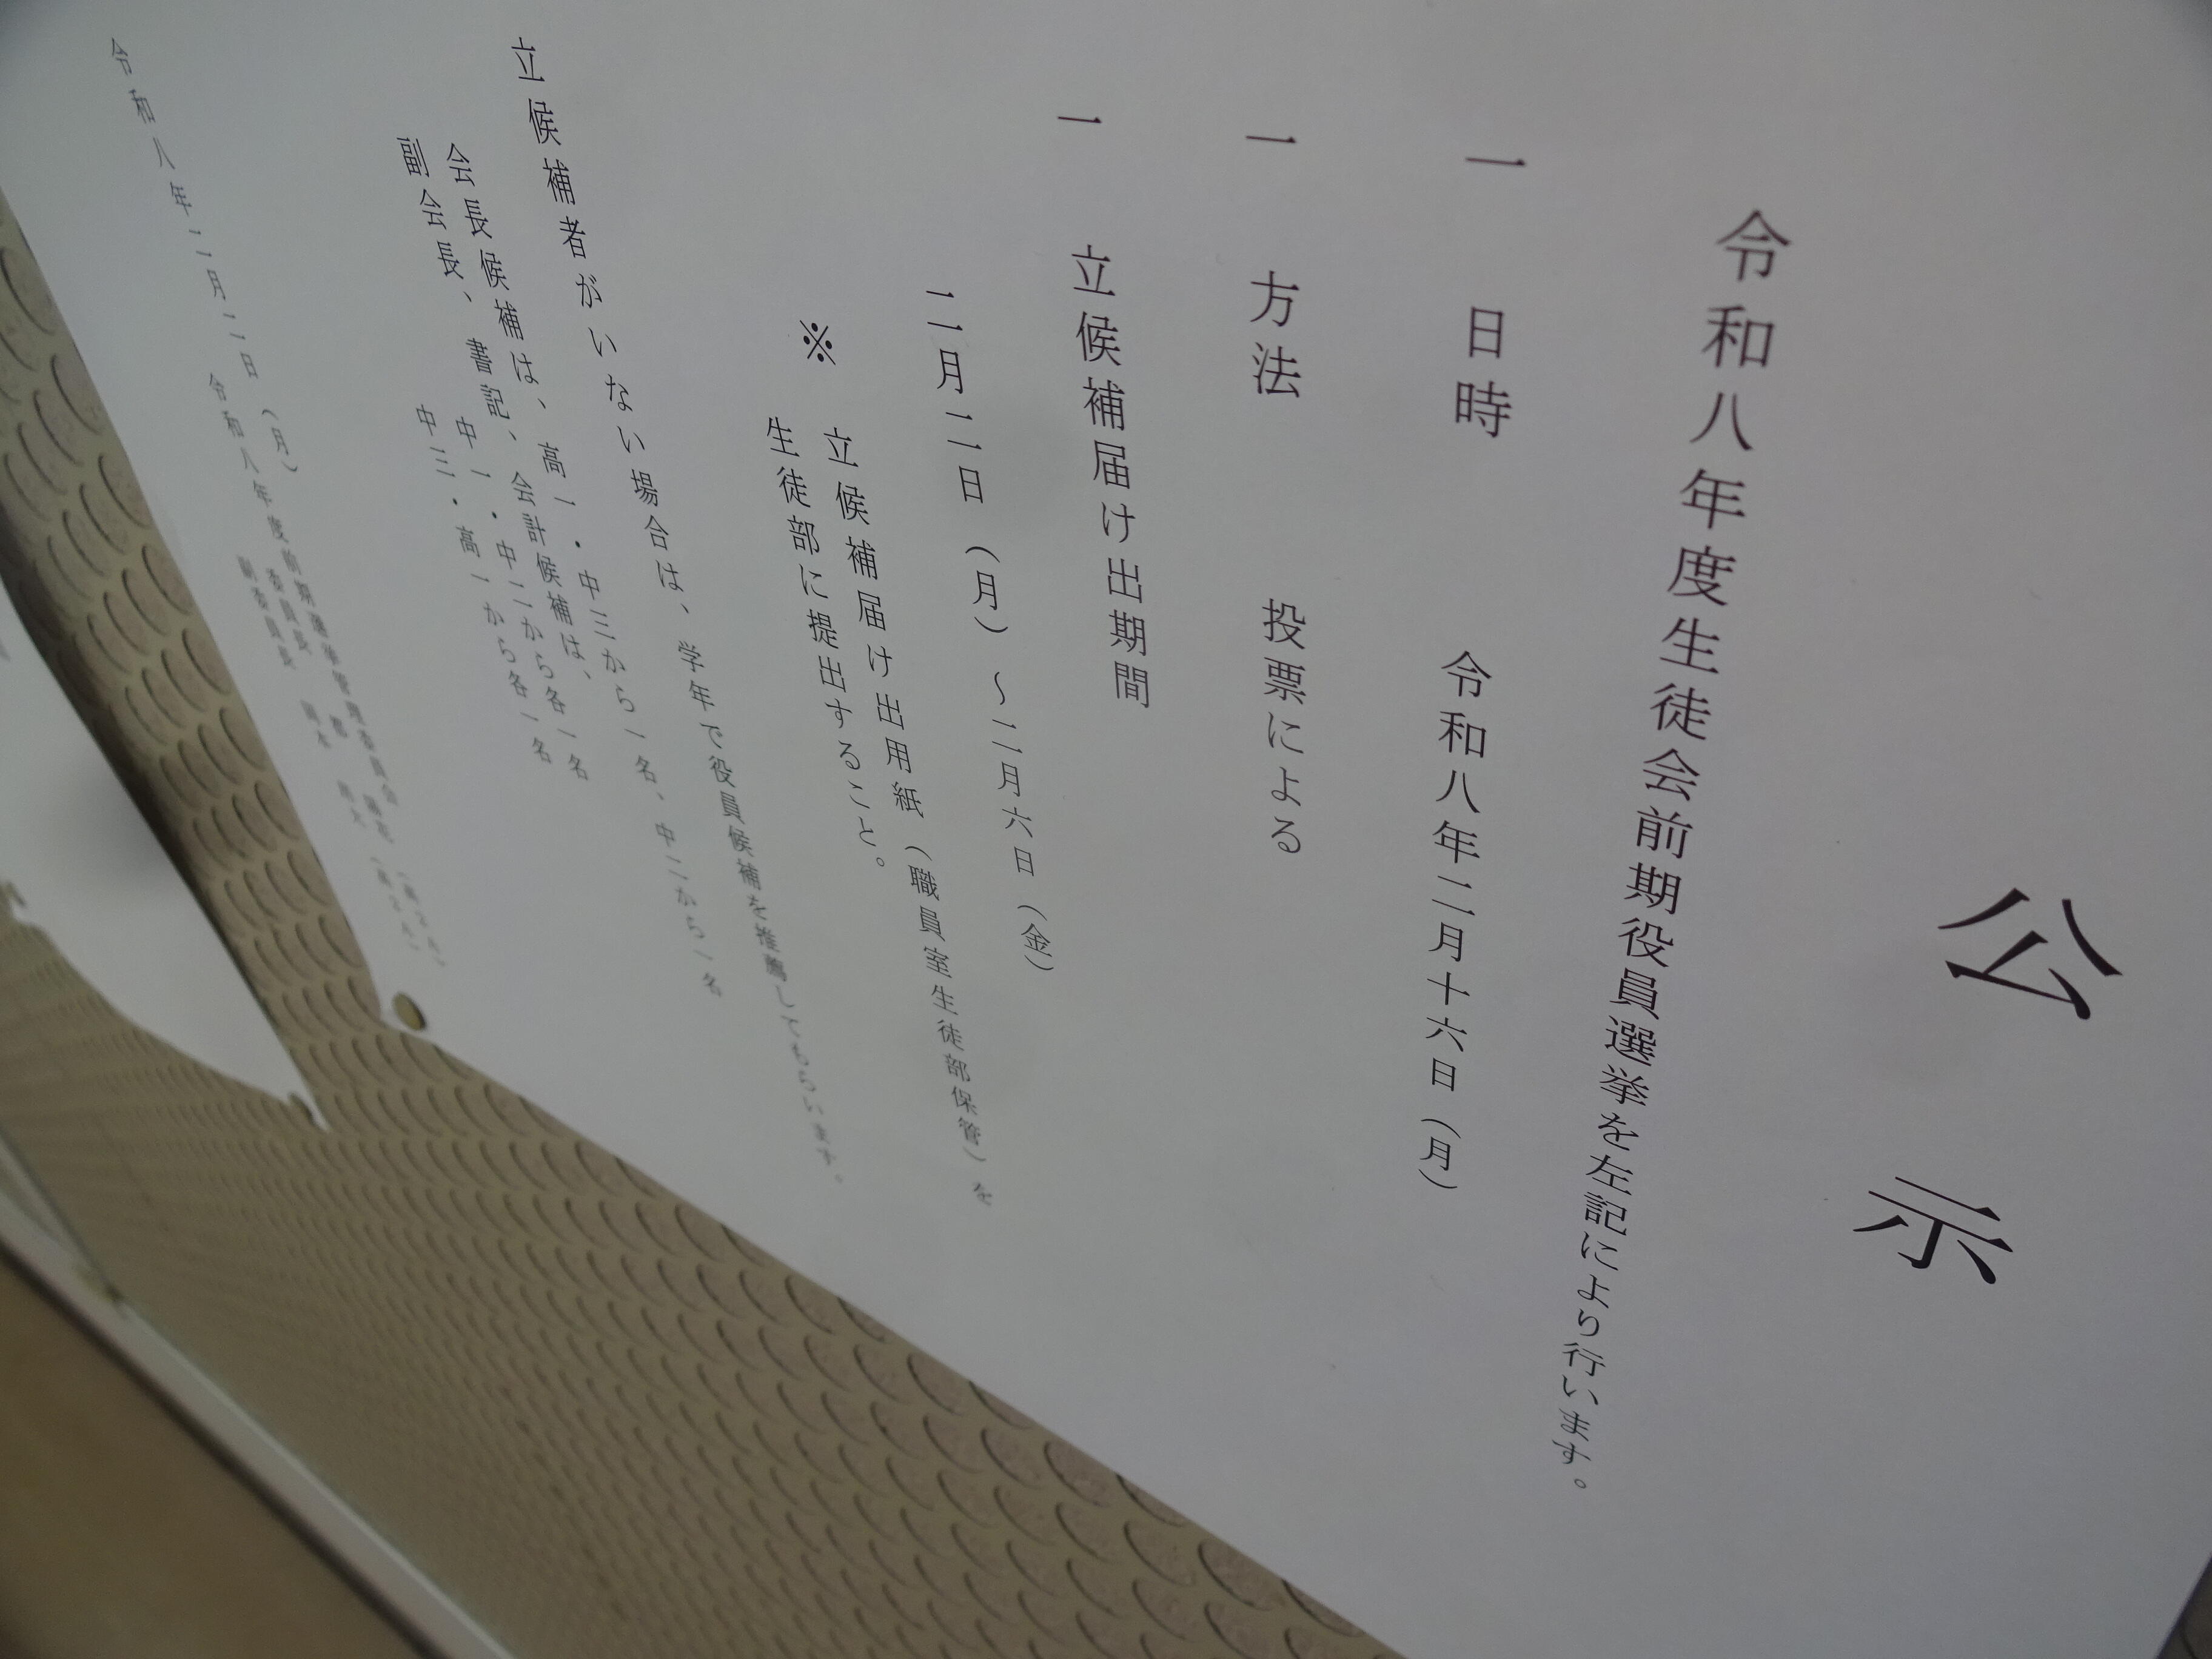 公示
令和八年度生徒会前期役員選挙を左記により行います。
一 日時 令和八年二月十六日（月）
一 方法 投票による
一 立候補届け出期間
二月二日（月）～二月六日（金）
※ 立候補届け出用紙（職員室生徒部保管）を
生徒部に提出すること。
立候補者がいない場合は、学年で役員候補を推薦してもらいます。
会長候補は、高一・中三から一名、中二から一名
副会長、書記、会計候補は、
中一・中二から各一名
中三・高一から各一名
令和八年二月二日（月）
令和八年度前期選挙管理委員会
委員長
副委員長